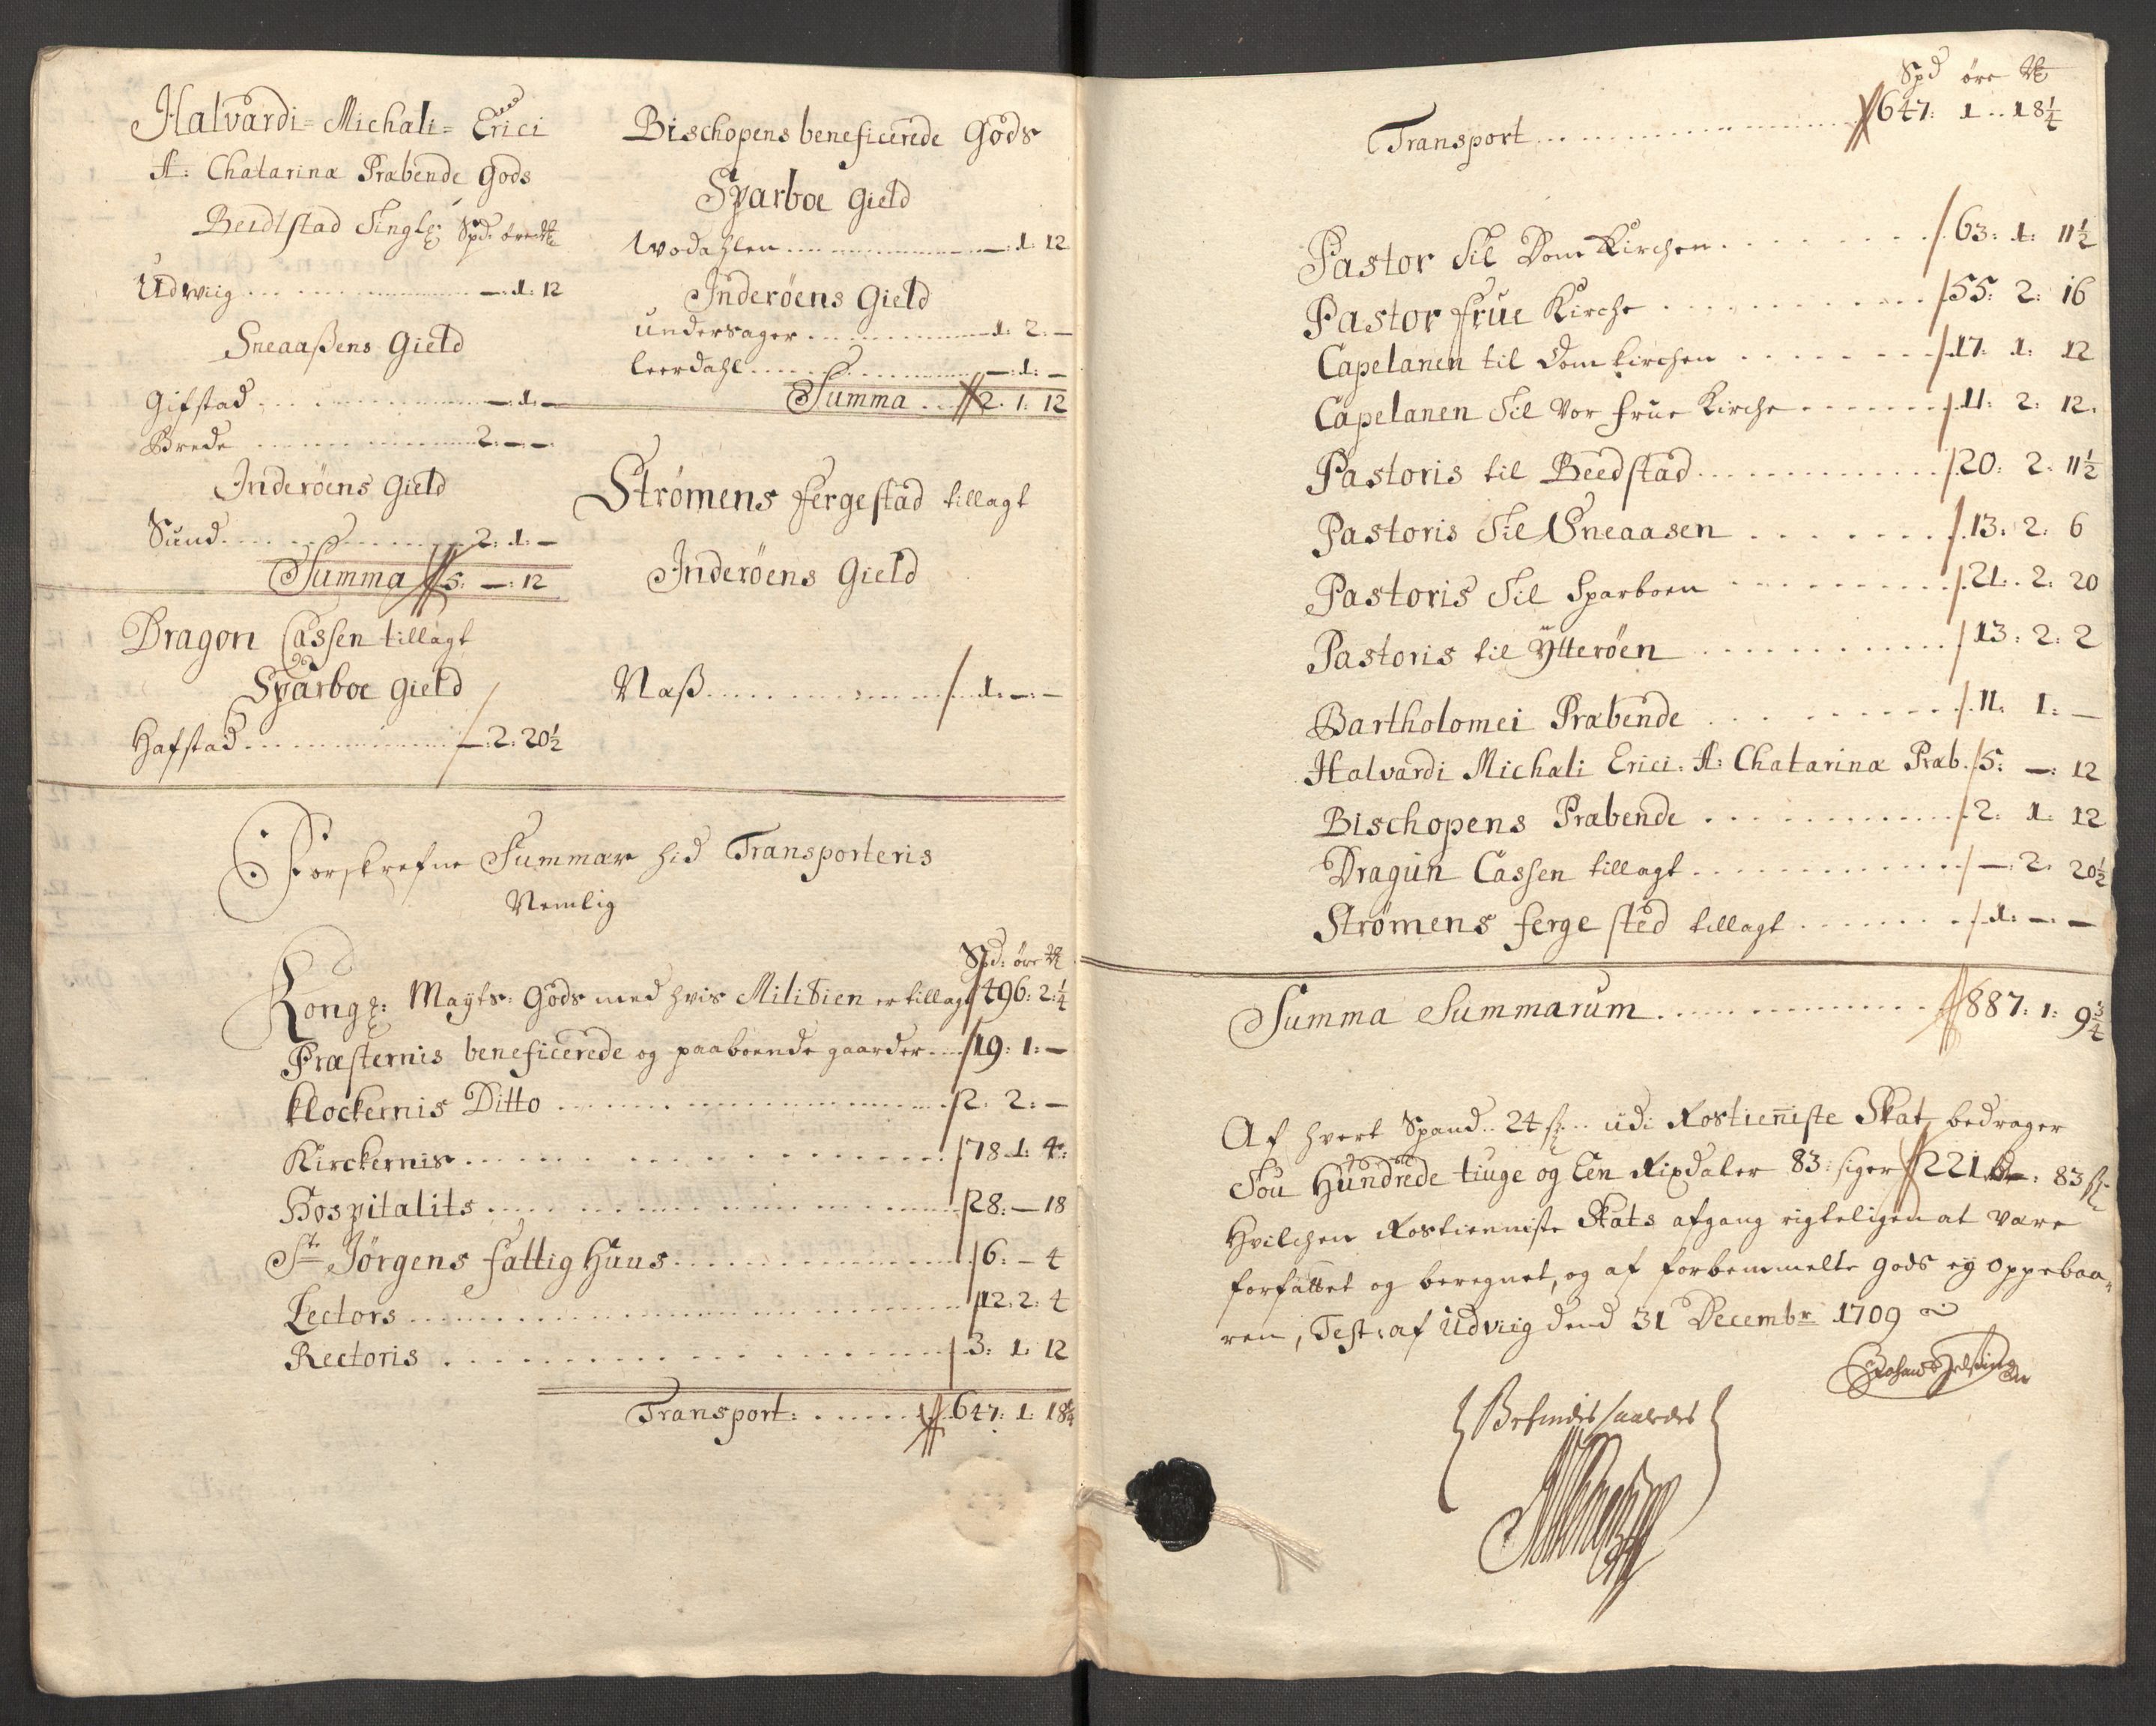 Halvardi= Michali= Erici
A: Chatarinæ Præbende Gods
Beidtstad Tingl: Spd: øre
Udwiig ... —: 1: 12
Sneaaßens Gield
Gifstad ... —: 1: —
Brede ... 2: —: —
Inderöens Gield
Sund ... 2: 1: —
Summa 5: —: 12
Dragon Cassen tillagt
Sparboe Gield
Hafstad ... —: 2: 20½
Bischopens beneficerede Gods
Sparboe Gield
Wodahlen ... —: 1: 12
Inderöens Gield
Undersager ... 1: 2: —
Leerdahl ... —: 1: —
Summa .. 2: 1: 12
Strömens Fergestad tillagt
Inderöens Gield
Naß ... 1: —: —
Forskrefne Summar hid Transporteris
Nemlig
Spd: øre
Kongl: Mayts: Gods med hvis Militien er tillagt 496: 2: ¼
Præsternis beneficerede og paaboende gaarder ... 19: 1: —
Klockernis Ditto ... 2: 2: —
Kirckernis ... 78: 1: 4:
Hospitalits ... 28: — 18
Ste Jörgens fattig Huus ... 6: — 4
Lectors ... 12: 2: 4
Rectoris ... 3: 1: 12
Transport: ... 647: 1: 18¼
Spd øre
Transport ... 647: 1 .. 18¼
Pastor Til Dom Kirchen ... 63: 1: 11½
Pastor Frue Kirche ... 55: 2: 16
Capelanen til Domkirchen ... 17: 1: 12
Capelanen Til Vor Frue Kirche ... 11: 2: 12.
Pastoris til Beedstad ... 20: 2: 11½
Pastoris Til Sneaasen ... 13: 2: 6
Pastoris Til Sparboen ... 21: 2: 20
Pastoris til Ytteröen ... 13: 2: 2
Bartholomei Præbende ... 11: 1: —
Halvardi Michali Erici: A: Chatarinæ Præb. 5: —: 12
Bischopens Præbende ... 2: 1: 12
Dragun Cassen tillagt ... —: 2: 20½
Strömens ferge sted tillagt ... 1: —: —
Summa Summarum ... 887: 1: 9¾
Af hvert Spand .. 24 ß .. udi Rostieniste Skat, bedrager
Tou Hundrede tiuge og Een Rixdaler 83: siger 221 : 83 ß
Hvilchen Rostienniste Skats afgang rigteligen at være
forfattet og beregnet, og af forbemmelte gods ey oppebaa„
ren, Test: af Udviig dend 31 Decembr 1709
Befindes saaledes